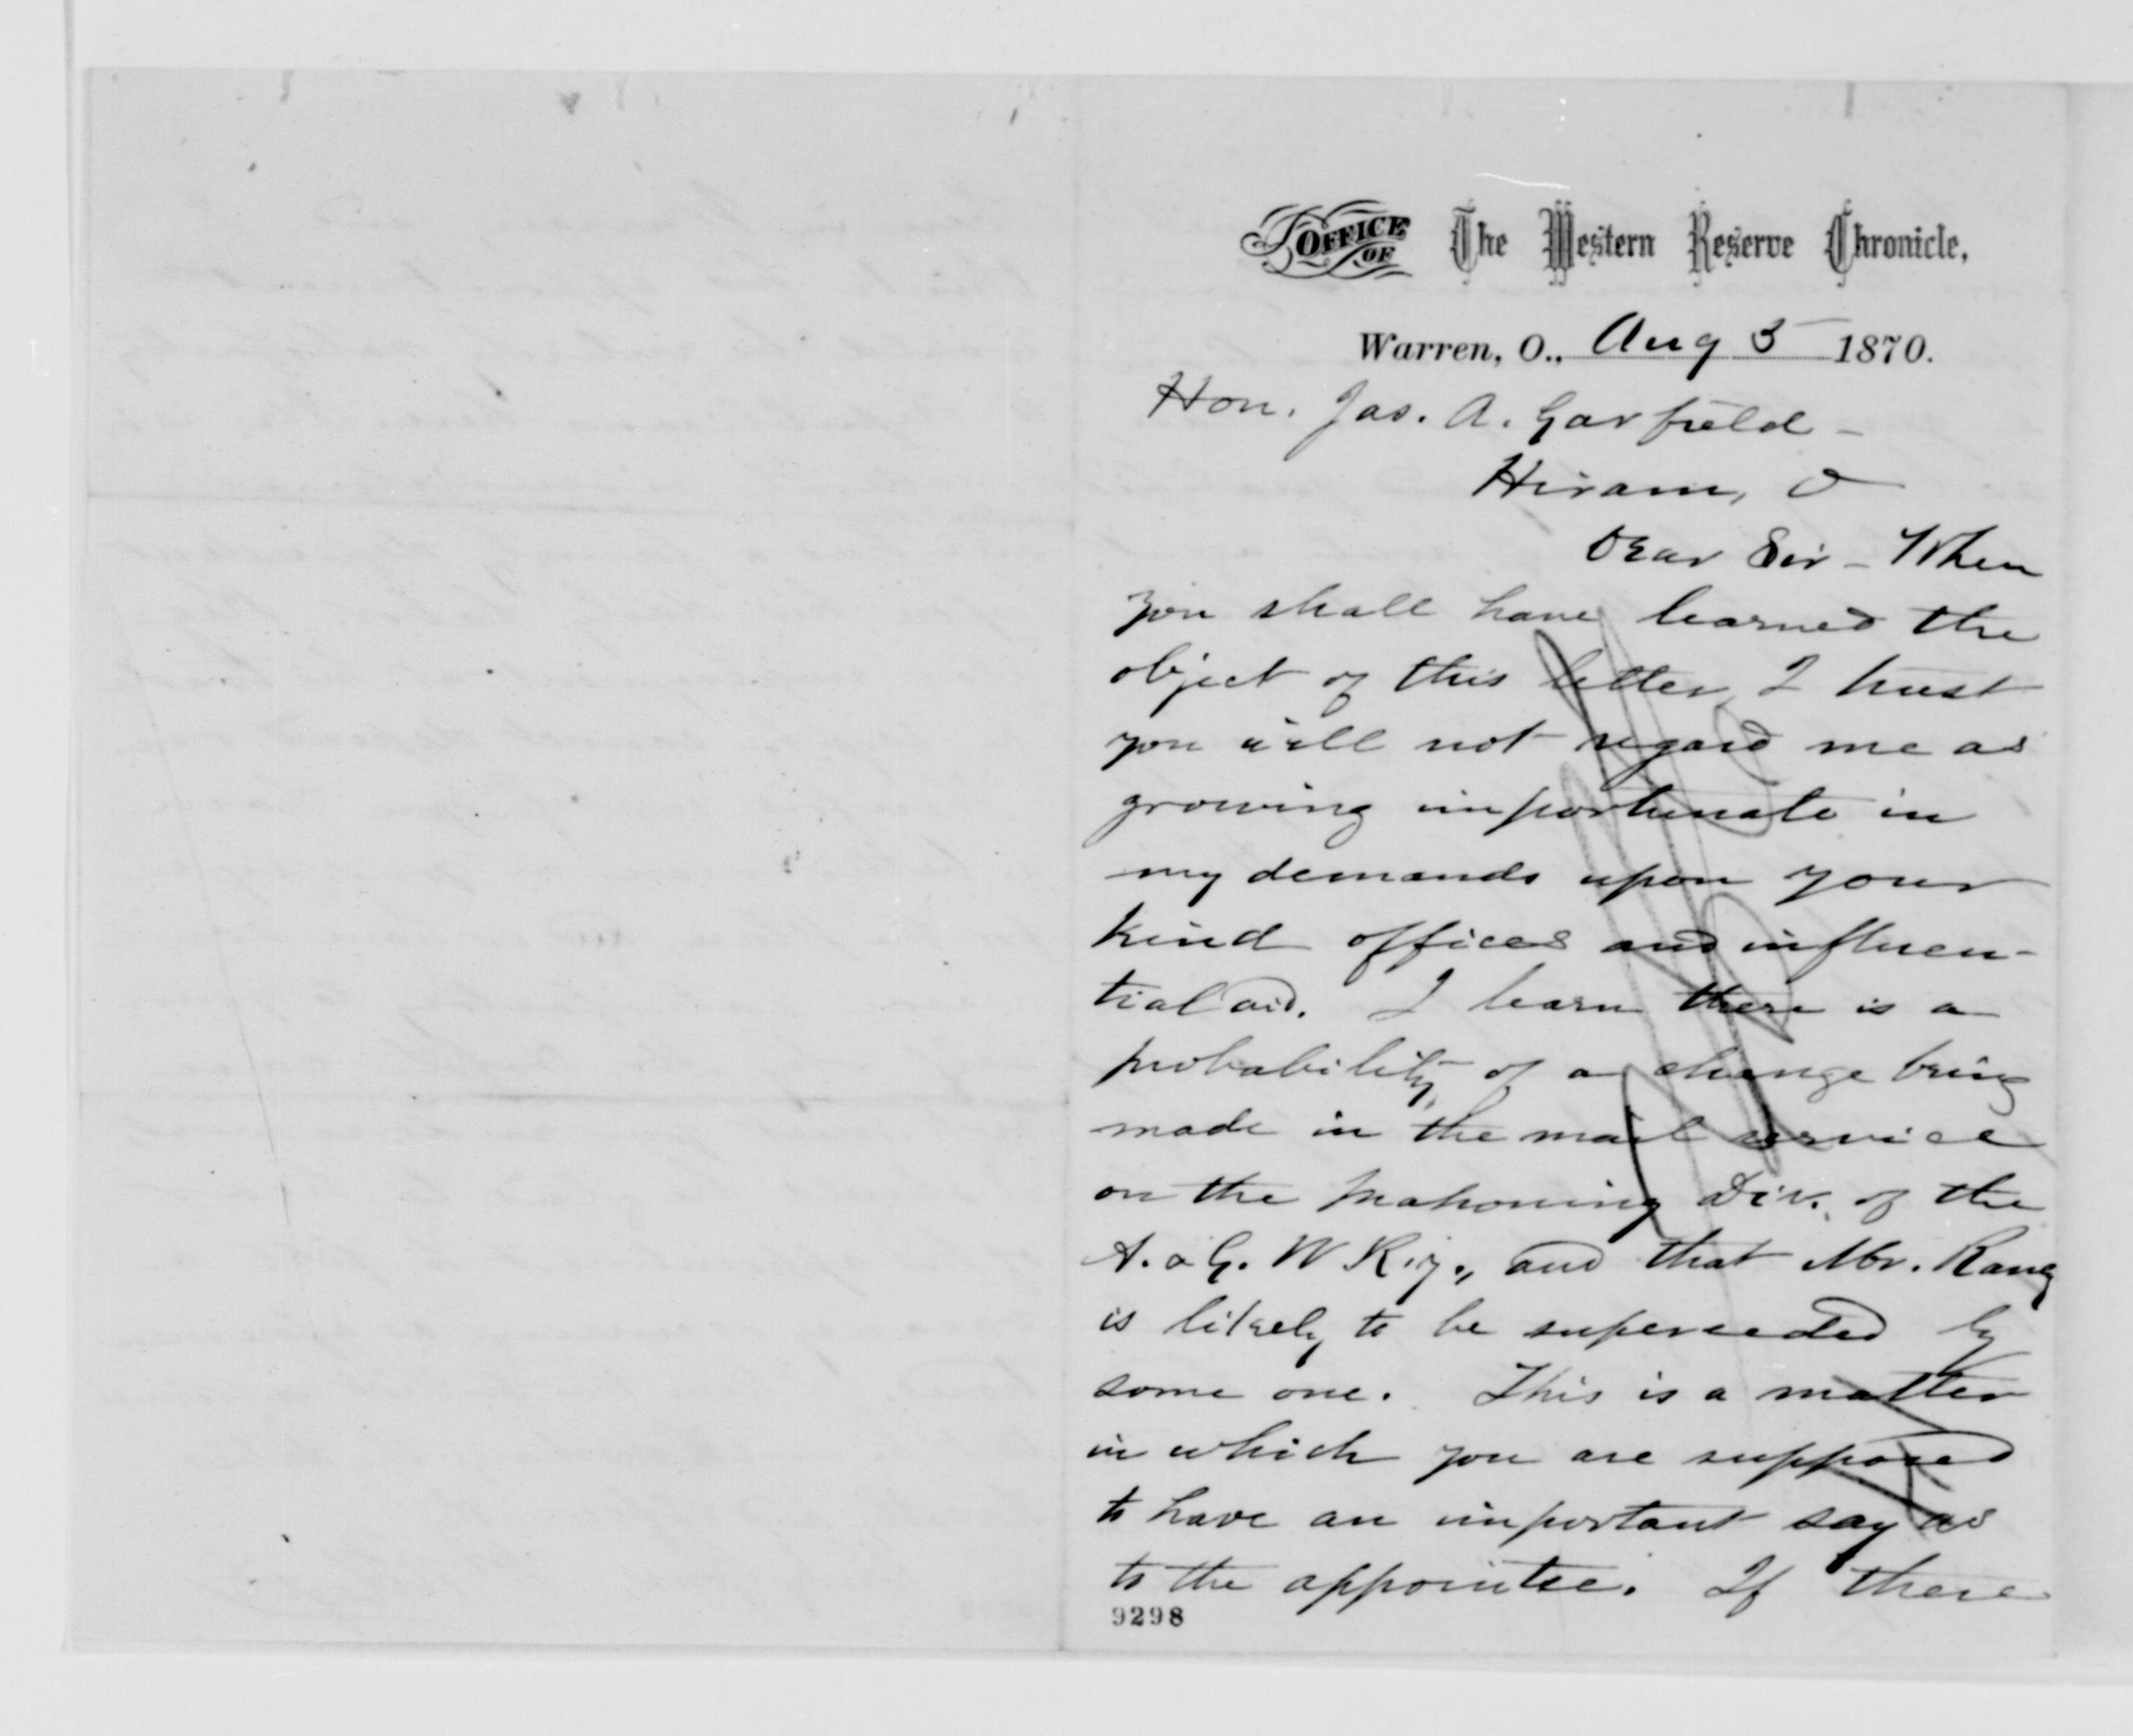 OFFICE OF The Western Reserve Chronicle,
Warren, O., Aug 5 1870.
Hon. Jas. A. Garfield –
Hiram, O
Dear Sir – When
you shall have learned the
object of this letter, I trust
you will not regard me as
growing importunate in
my demands upon your
kind offices and influen-
tial aid. I learn there is a
probability of a change being
made in the mail service
on the Mahoning Div. of the
A. & G. W Ry., and that Mr.
is likely to be superseded by
some one. This is a matter
in which you are supposed
to have an important say as
to the appointee. If there
9298